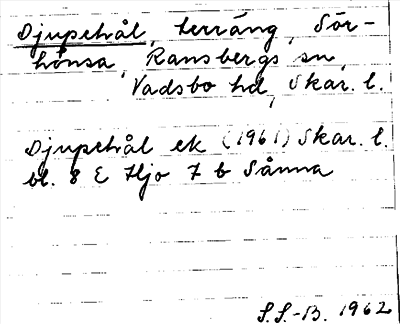 Djupehål, terräng, Sör-
hönsa, Ransbergs sn,
Vadsbo hd, Skar. l.
Djupehål ek (1961) Skar. l.
bl. 8 E Hjo 7 b Sånna
S.S.-B. 1962